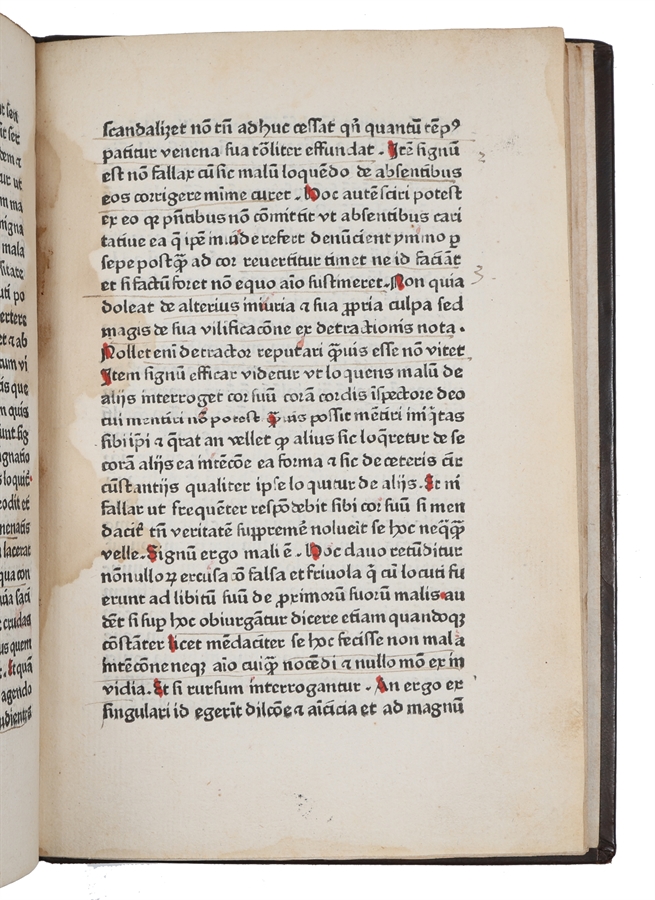 t sen
it ser
tem ⁊
ur ut
m ma
signa
mala
sitate
uti po
ertere
et ⁊ ab
cum vi
as que
m quis
unt sig
ignatio
s loquit᷑
rodit et
menatis
lacerat
qua con
crudas
us quem
Et quā
agendo
udientes
scandalizet nō tn̄ adhuc cessat qn̄ quantū tēpꝰ
patitur venena sua tōliter effundat . Itē signū
est nō fallax cū sic malū loquēdo de absentibus
eos corrigere mīme curet . Hoc autē sciri potest
ex eo qꝛ pn̄tibus nō cōmittit vt absentibus cari
tatiue ea q̄ ipē mīude refert denūcient ymmo p̱
sepe postqᷓ ad cor reuertitur timet ne id faciāt
et si factū foret nō equo aīo sustineret . Non quia
doleat de alterius iniuria ⁊ sua ꝓpria culpa sed
magis de sua vilificacōne ex detractionis nota .
Nollet eni detractor reputari qᷓuis esse non vitet
Item signū efficax videtur vt loquens malū de
alijs interroget cor suū corā cordis īspectore deo
cui mentiri nō potest Qᷓuis possit mētiri iniq̇tas
sibi ip̄i ⁊ q̄rat an vellet ꝙ alius sic loq̄retur de se
corā alijs ea intēcōe ea forma ⁊ sic de ceteris cir
cūstantijs qualiter ipse loquitur de alijs . Et ni
fallar ut frequēter respōdebit sibi cor suū si men
dacit᷑ tn̄ veritatē suppremē noluerit se hoc neqᷓqᷓ
velle . Signū ergo mali ē . Hoc clauo retūditur
nōnulloꝝ excusacō falsa et friuola q̄ cū locuti fu
erunt ad libitū suū de proximorū suorū malis au
dēt si suꝑ hoc obiurgātur dicere etiam quandoqꝫ
cōstāter licet mēdaciter se hoc fecisse non mala
intēcōne neqꝫ aīo cuiqᷓ nocēdi ⁊ nullo mō ex in
vidia . Et si rursum interrogantur . An ergo ex
singulari id egerīt dilcōe ⁊ amīcicia et ad magnū
2
3